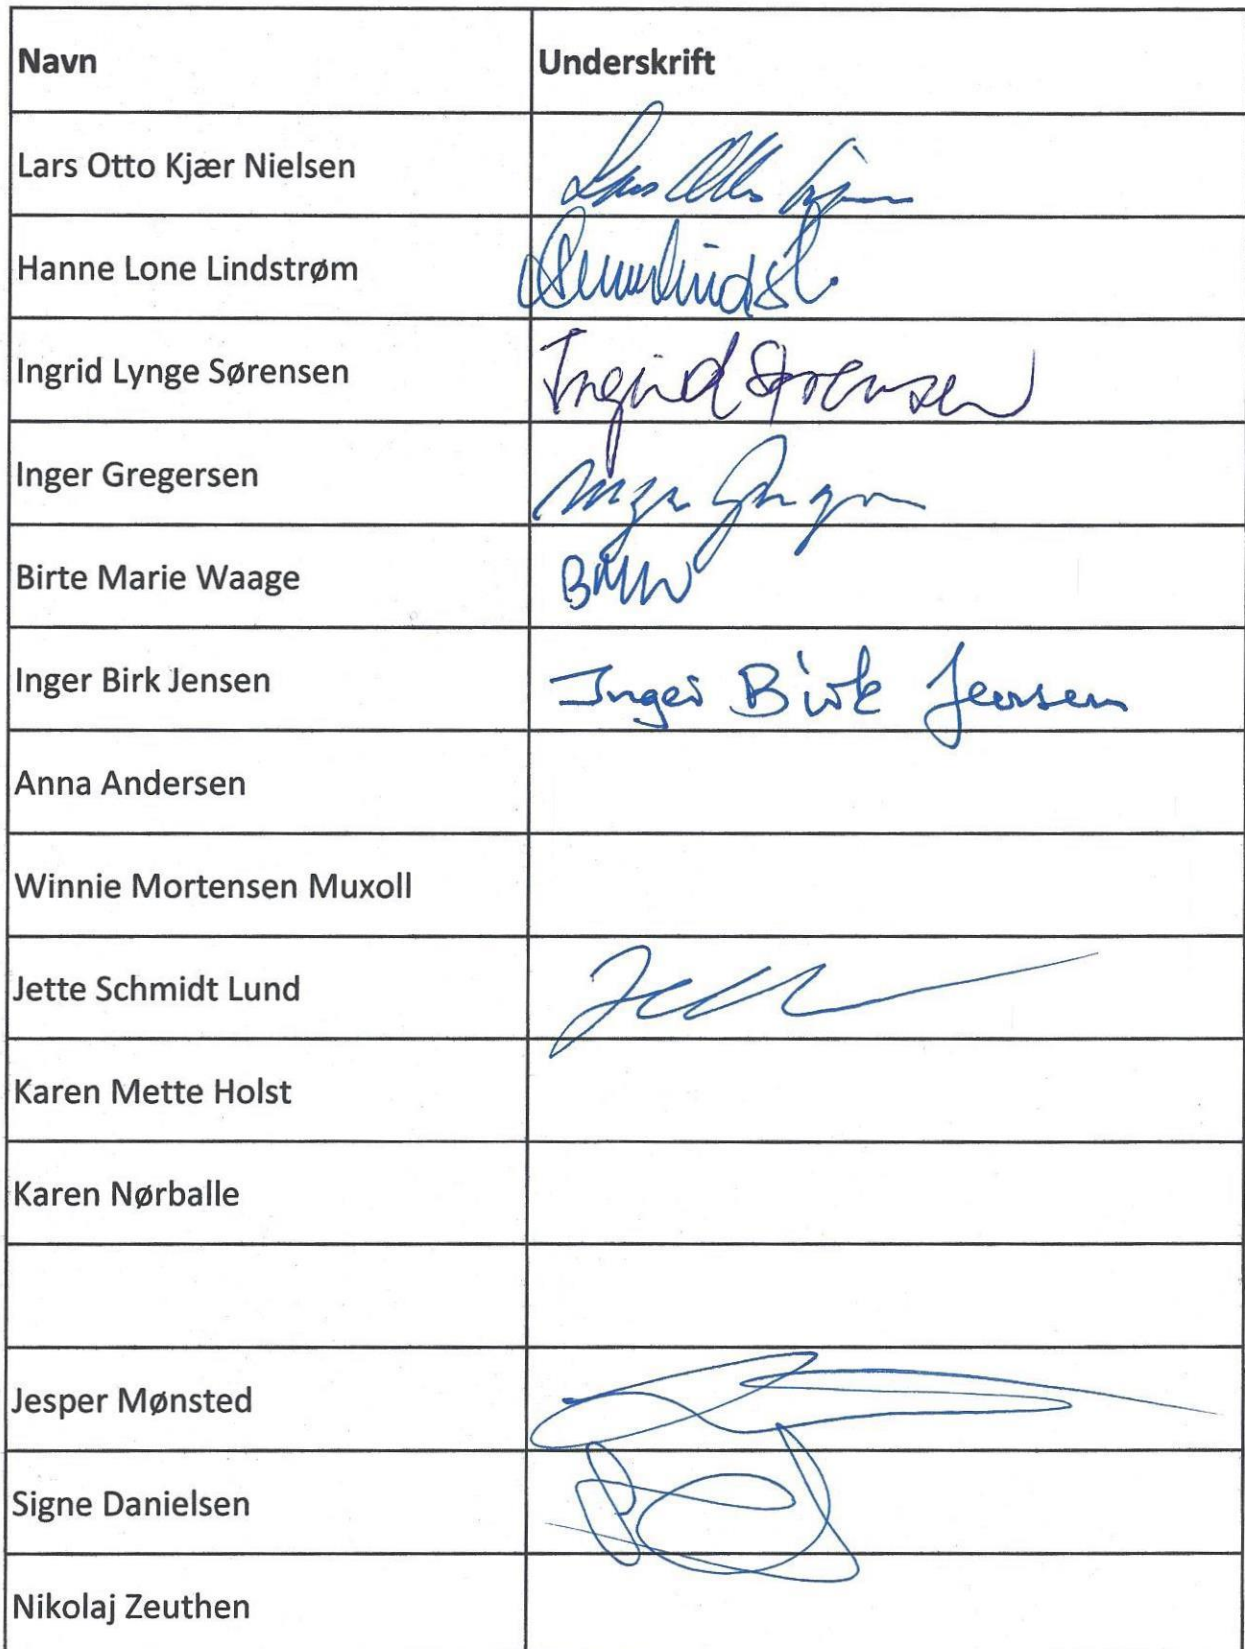 Navn Underskrift
Lars Otto Kjær Nielsen Lars Otto
Hanne Lone Lindstrøm
Ingrid Lynge Sørensen Ingrid Sørensen
Inger Gregersen Inger
Birte Marie Waage BMW
Inger Birk Jensen Inger Birk Jensen
Anna Andersen
Winnie Mortensen Muxoll
Jette Schmidt Lund
Karen Mette Holst
Karen Nørballe
Jesper Mønsted
Signe Danielsen
Nikolaj Zeuthen